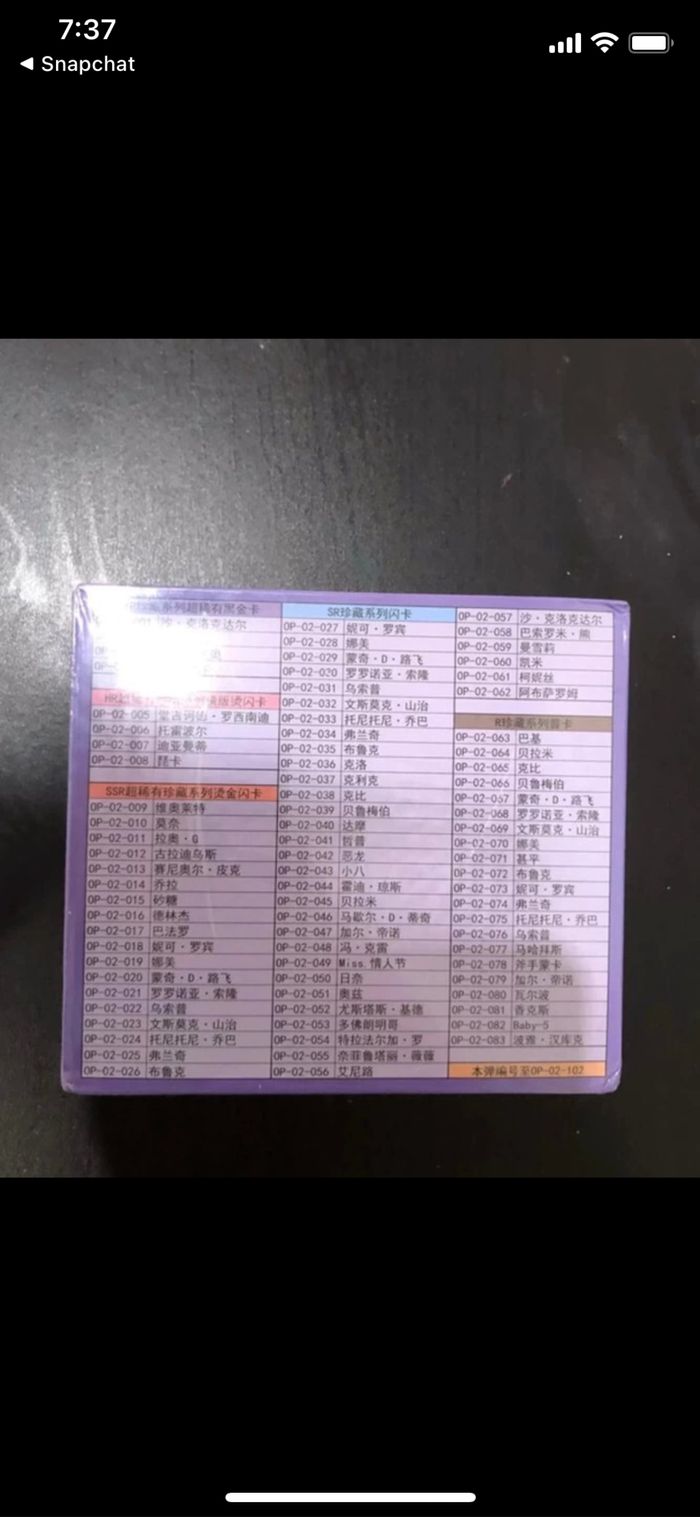 7:37
◀ Snapchat
系列超稀有黑金卡
沙·克洛克达尔
OP-02-005 蒙古讷伽·罗西南迪
OP-02-006 托雷波尔
OP-02-007 迪亚曼蒂
OP-02-008 琵卡
SSR超稀有珍藏系列烫金闪卡
OP-02-009 维奥莱特
OP-02-010 莫奈
OP-02-011 拉奥·G
OP-02-012 古拉迪乌斯
OP-02-013 赛尼奥尔·皮克
OP-02-014 乔拉
OP-02-015 砂糖
OP-02-016 德林杰
OP-02-017 巴法罗
OP-02-018 妮可·罗宾
OP-02-019 娜美
OP-02-020 蒙奇·D·路飞
OP-02-021 罗罗诺亚·索隆
OP-02-022 乌索普
OP-02-023 文斯莫克·山治
OP-02-024 托尼托尼·乔巴
OP-02-025 弗兰奇
OP-02-026 布鲁克
SR珍藏系列闪卡
OP-02-027 妮可·罗宾
OP-02-028 娜美
OP-02-029 蒙奇·D·路飞
OP-02-030 罗罗诺亚·索隆
OP-02-031 乌索普
OP-02-032 文斯莫克·山治
OP-02-033 托尼托尼·乔巴
OP-02-034 弗兰奇
OP-02-035 布鲁克
OP-02-036 克洛
OP-02-037 克利克
OP-02-038 克比
OP-02-039 贝鲁梅伯
OP-02-040 达摩
OP-02-041 哲普
OP-02-042 恶龙
OP-02-043 小八
OP-02-044 霍迪·琼斯
OP-02-045 贝拉米
OP-02-046 马歇尔·D·蒂奇
OP-02-047 加尔·帝诺
OP-02-048 冯·克雷
OP-02-049 Miss.情人节
OP-02-050 日奈
OP-02-051 奥兹
OP-02-052 尤斯塔斯·基德
OP-02-053 多佛朗明哥
OP-02-054 特拉法尔加·罗
OP-02-055 奈菲鲁塔丽·薇薇
OP-02-056 艾尼路
OP-02-057 沙·克洛克达尔
OP-02-058 巴索罗米·熊
OP-02-059 曼雪莉
OP-02-060 凯米
OP-02-061 柯妮丝
OP-02-062 阿布萨罗姆
R珍藏系列普卡
OP-02-063 巴基
OP-02-064 贝拉米
OP-02-065 克比
OP-02-066 贝鲁梅伯
OP-02-067 蒙奇·D·路飞
OP-02-068 罗罗诺亚·索隆
OP-02-069 文斯莫克·山治
OP-02-070 娜美
OP-02-071 甚平
OP-02-072 布鲁克
OP-02-073 妮可·罗宾
OP-02-074 弗兰奇
OP-02-075 托尼托尼·乔巴
OP-02-076 乌索普
OP-02-077 马哈拜斯
OP-02-078 斧手蒙卡
OP-02-079 加尔·帝诺
OP-02-080 瓦尔波
OP-02-081 香克斯
OP-02-082 Baby-5
OP-02-083 波雅·汉库克
本弹编号至OP-02-102